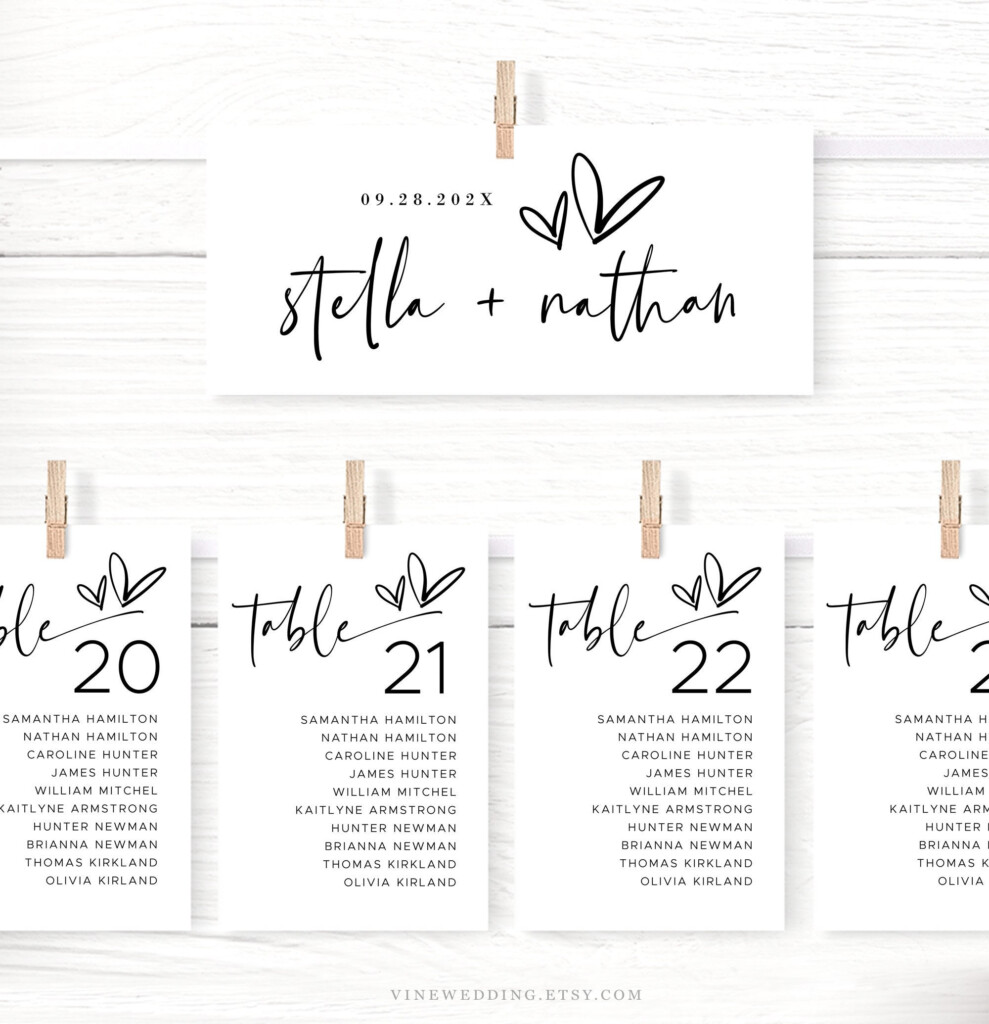 09.28.202X
stella + nathan
ble
20
SAMANTHA HAMILTON
NATHAN HAMILTON
CAROLINE HUNTER
JAMES HUNTER
WILLIAM MITCHEL
KAITLYNE ARMSTRONG
HUNTER NEWMAN
BRIANNA NEWMAN
THOMAS KIRKLAND
OLIVIA KIRLAND
table
21
SAMANTHA HAMILTON
NATHAN HAMILTON
CAROLINE HUNTER
JAMES HUNTER
WILLIAM MITCHEL
KAITLYNE ARMSTRONG
HUNTER NEWMAN
BRIANNA NEWMAN
THOMAS KIRKLAND
OLIVIA KIRLAND
table
22
SAMANTHA HAMILTON
NATHAN HAMILTON
CAROLINE HUNTER
JAMES HUNTER
WILLIAM MITCHEL
KAITLYNE ARMSTRONG
HUNTER NEWMAN
BRIANNA NEWMAN
THOMAS KIRKLAND
OLIVIA KIRLAND
table
2
SAMANTHA H
NATHAN H
CAROLINE
JAMES
WILLIAM
KAITLYNE ARM
HUNTER
BRIANNA
THOMAS K
OLIVIA
VINEWEDDING.ETSY.COM